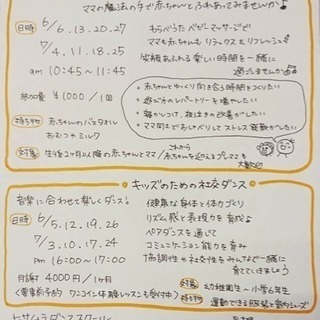 ママの魔法の手で赤ちゃんとふれあってみませんか♪
日時 6/6.13.20.27
7/4.11.18.25
am 10:45～11:45
わらべうたベビーマッサージで
ママも赤ちゃんもリラックス&リフレッシュ♪
笑顔あふれる楽しい時間を一緒に
過ごしませんか
参加費 ¥1000/1回
持ち物 赤ちゃんのバスタオル
おむつ・ミルク
・赤ちゃんとゆっくり向き合う時間をつくりたい
・遊びのレパートリーを増やしたい
・寝かしつけ、夜泣きの改善がしたい
・ママ同士でおしゃべりしてストレス発散がしたい
対象 生後2ヶ月以降の赤ちゃんとママ/これから赤ちゃんを迎えるプレママも
キッズのための社交ダンス
音楽に合わせて楽しくダンス♪
日時 6/5.12.19.26
7/3.10.17.24
pm 16:00～17:00
月謝 4000円/1ヶ月
(要事前予約 ワンコイン体験レッスンも受付中)
健康な身体と体力づくり
リズム感と表現力を育成♪
ペアダンスを通じて
コミュニケーション能力を育み
協調性や社交性をみんなで一緒に
育てていきましょう
対象 幼稚園生～小学6年生
持ち物 運動できる服装と室内シューズ
ヒサムラダンススクール